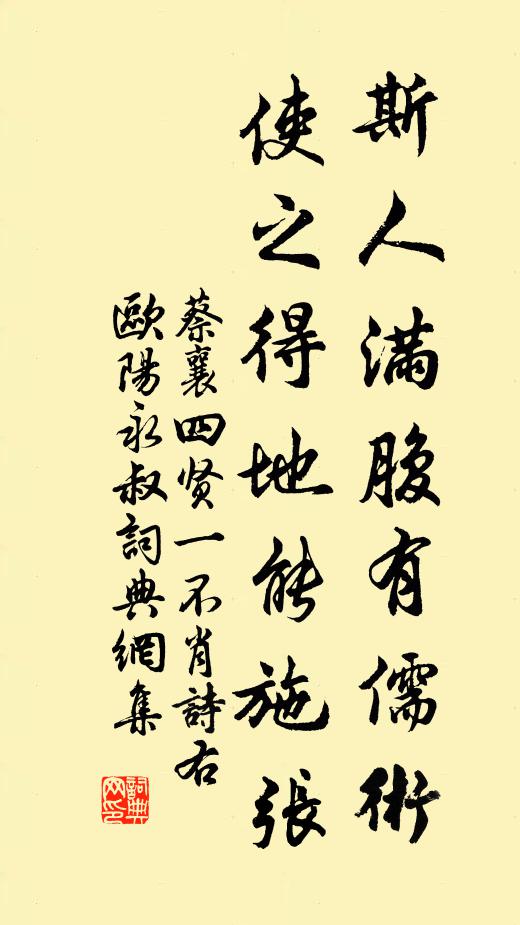 斯人满腹有儒術
使之得地能施張
蔡襄四贤一不肖詩右
歐陽永叔詞典網集
詞典
网印